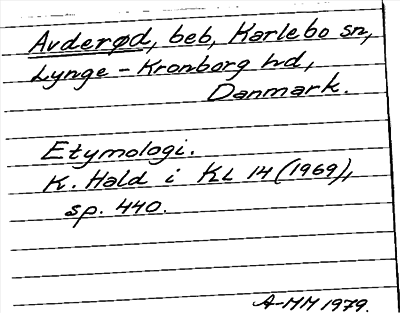 Avderød, beb, Karlebo sn,
Lynge-Kronborg hd,
Danmark.
Etymologi.
K. Hald i KL 14 (1969),
sp. 440.
A-MM 1979.